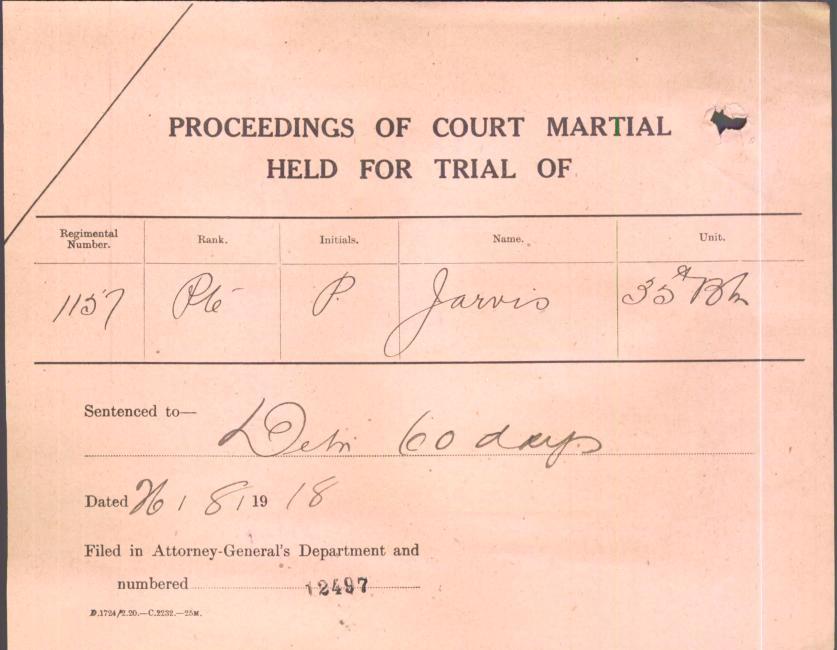 PROCEEDINGS OF COURT MARTIAL
HELD FOR TRIAL OF
Regimental Number. Rank. Initials. Name. Unit.
1157 Pte P. Jarvis Bn
Sentenced to— Detn 60 days
Dated 26/8/1918
Filed in Attorney-General's Department and
numbered 12497
D.1724/2.20.—C.2232.—25M.